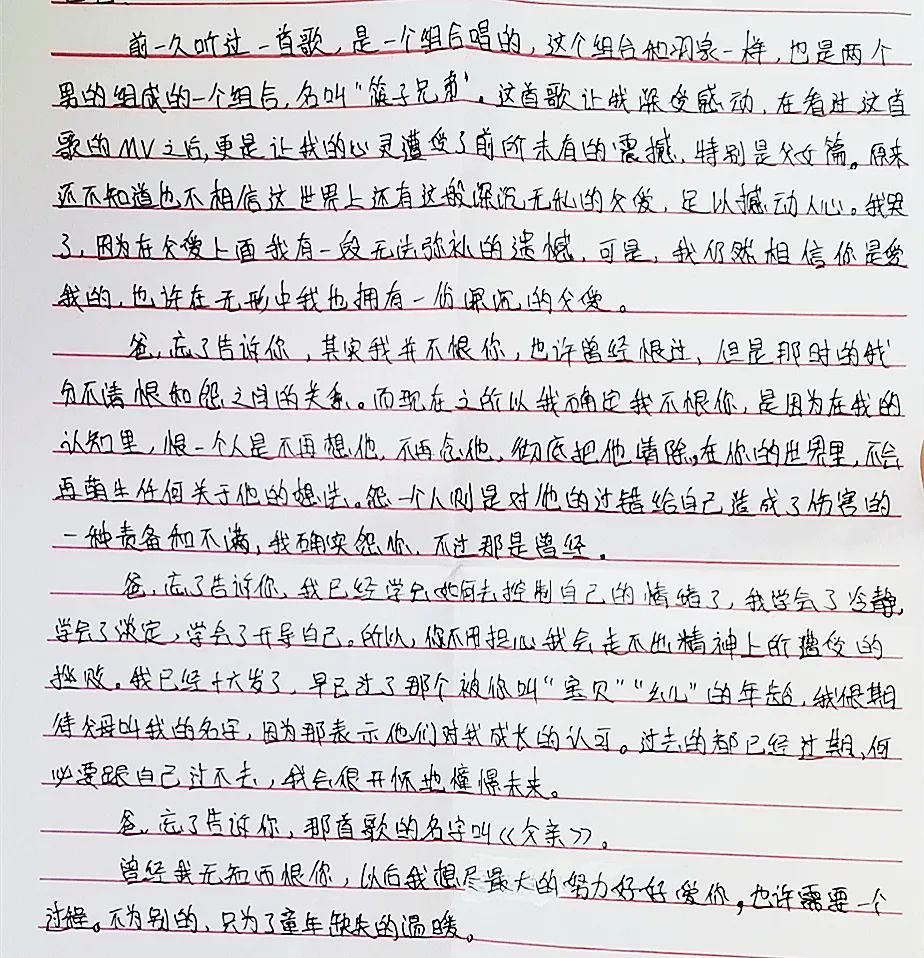 前一久听过一首歌，是一个组合唱的，这个组合和羽泉一样，也是两个
男的组成的一个组合，名叫“筷子兄弟”。这首歌让我深受感动，在看过这首
歌的MV之后，更是让我的心灵遭受了前所未有的震撼，特别是父女篇。原来
还不知道也不相信这世界上还有这般深沉无私的父爱，足以撼动人心。我哭
了，因为在父爱上面我有一段无法弥补的遗憾，可是，我仍然相信你是爱
我的，也许在无形中我也拥有一份深沉的父爱。
爸，忘了告诉你，其实我并不恨你，也许曾经恨过，但是那时的我
分不清恨和怨之间的关系。而现在之所以我确定我不恨你，是因为在我的
认知里，恨一个人是不再想他，不再念他，彻底把他清除，在你的世界里，不会
再萌生任何关于他的想法。怨一个人则是对他的过错给自己造成了伤害的
一种责备和不满，我确实怨你，不过那是曾经。
爸，忘了告诉你，我已经学会如何去控制自己的情绪了，我学会了冷静，
学会了淡定，学会了开导自己。所以，你不用担心我会走不出精神上所遭受的
挫败。我已经十六岁了，早已过了那个被你叫“宝贝”“幺儿”的年龄，我很期
待父母叫我的名字，因为那表示他们对我成长的认可。过去的都已经过期，何
必要跟自己过不去，我会很开怀地憧憬未来。
爸，忘了告诉你，那首歌的名字叫《父亲》。
曾经我无知而恨你，以后我想尽最大的努力好好爱你，也许需要一个
过程。不为别的，只为了童年缺失的温暖。